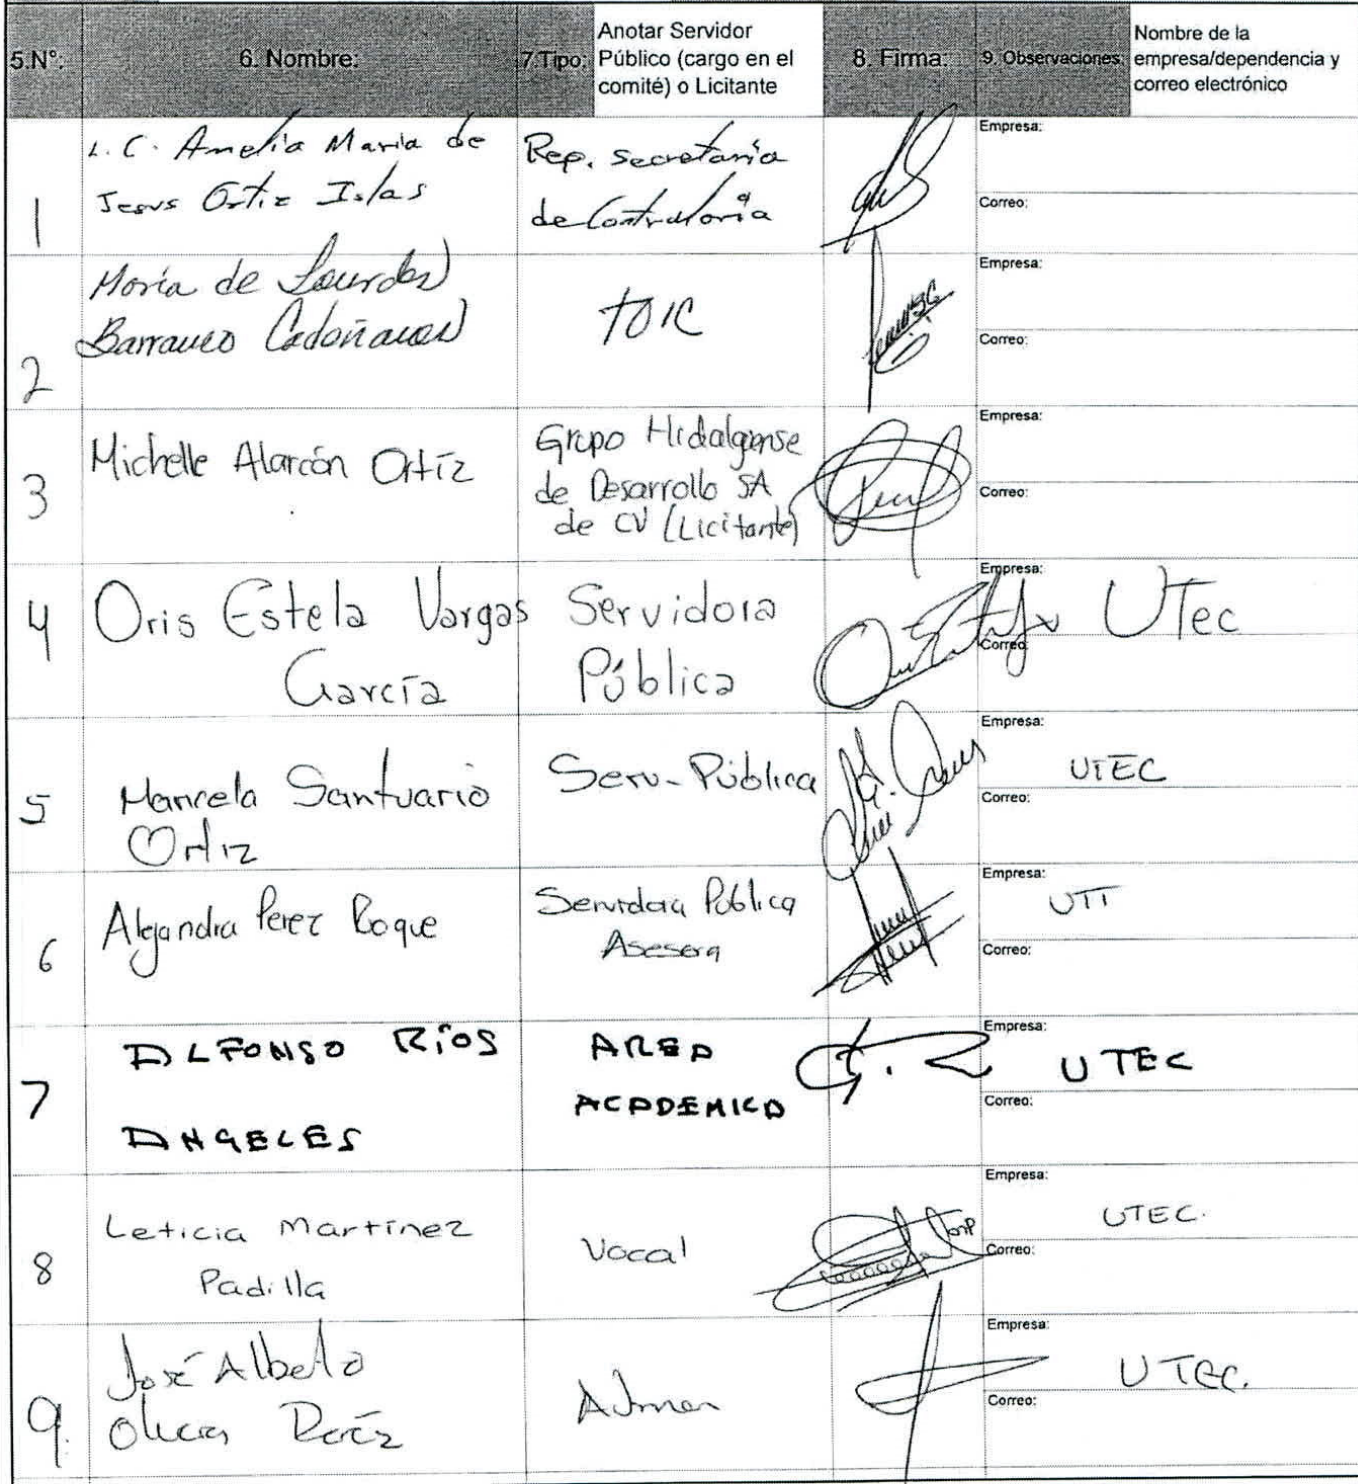 5.N°:
6. Nombre:
7.Tipo:
Anotar Servidor
Público (cargo en el
comité) o Licitante
8. Firma:
9. Observaciones:
Nombre de la
empresa/dependencia y
correo electrónico
1
L.C. Amelia Maria de
Jesus Ortiz Islas
Rep. Secretaria
de Contraloria
Empresa:
Correo:
2
María de Lourdes
Barranco
TOIC
Empresa:
Correo:
3
Michelle Alarcón Ortíz
Grupo Hidalguense
de Desarrollo SA
de CV (Licitante)
Empresa:
Correo:
4
Oris Estela Vargas
García
Servidora
Pública
Empresa:
UTec
Correo:
5
Marcela Santuario
Ortiz
Serv-Pública
Empresa:
UTEC
Correo:
6
Alejandra Perez Roque
Servidora Pública
Asesora
Empresa:
UTT
Correo:
7
ALFONSO RÍOS
ANGELES
AREA
ACADEMICA
Empresa:
UTEC
Correo:
8
Leticia Martínez
Padilla
Vocal
Empresa:
UTEC.
Correo:
9.
José Alberto
Empresa:
UTEC.
Correo: